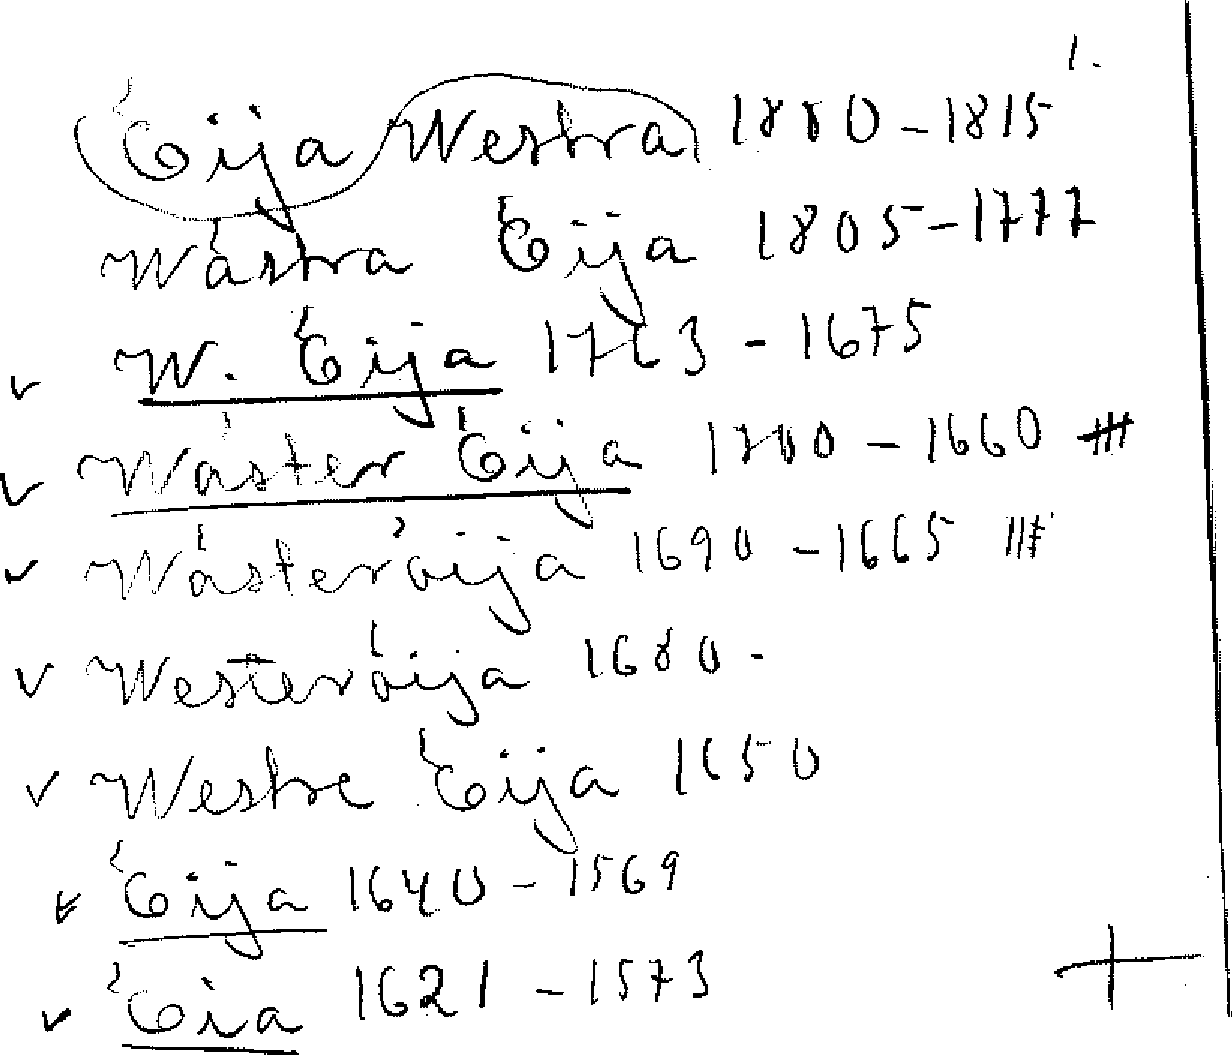 1.
Öija Westra 1880 - 1815
Wästra Öija 1805 - 1777
v W. Öija 1763 - 1675
v Wäster Öija 1700 - 1660 #
v Wästeröija 1690 - 1665 #
v Westeröija 1680 -
v Westre Öija 1650
v Öija 1640 - 1569
v Öia 1621 - 1573
+